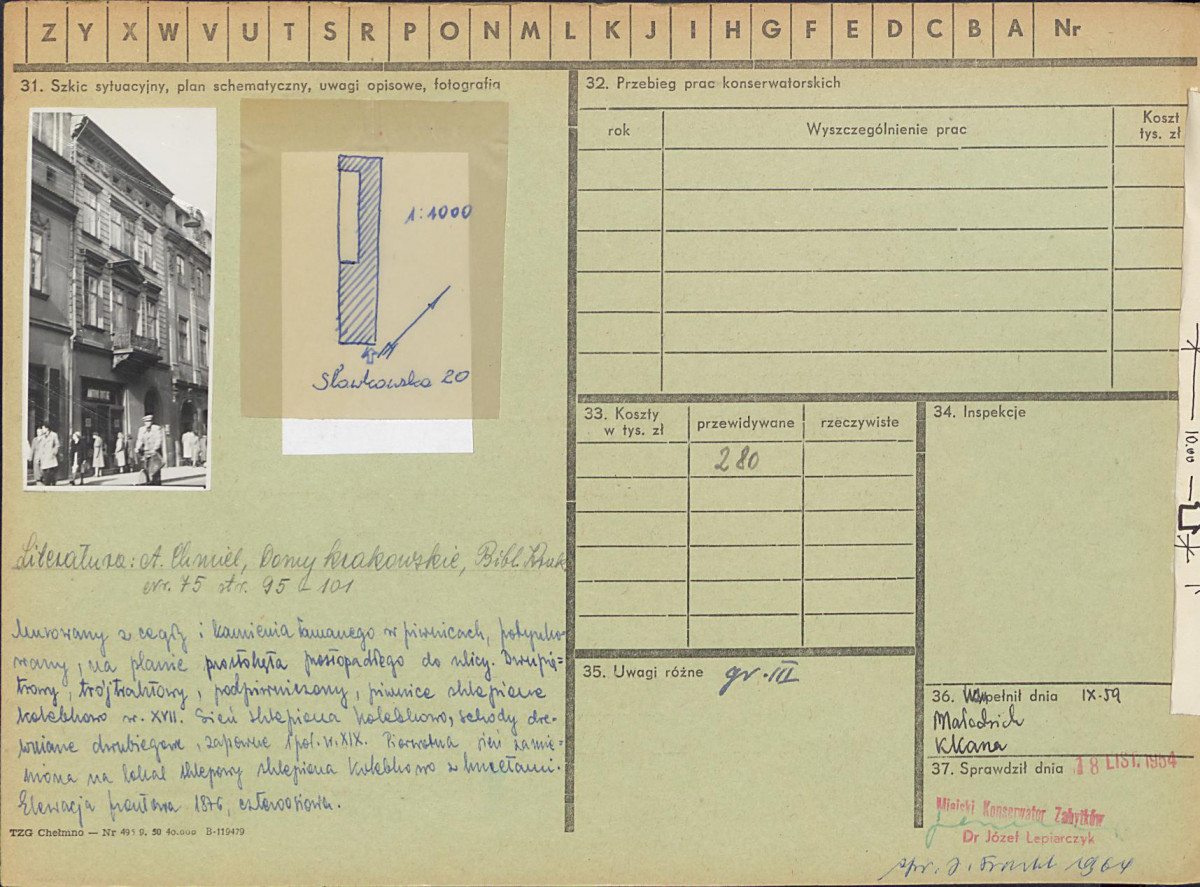 Z Y X W V U T S R P O N M L K J I H G F E D C B A Nr
31. Szkic sytuacyjny, plan schematyczny, uwagi opisowe, fotografia
1:1000
Sławkowska 20
Literatura: A. Chmiel, Domy krakowskie, Bibl. Krak
nr. 75 str. 95 - 101
Murowany z cegły i kamienia łamanego w piwnicach, potynko-
wany, na planie prostokąta prostopadłego do ulicy. Dwupię-
trowy, trójtraktowy, podpiwniczony, piwnice sklepione
kolebkowo w. XVII. Sień sklepiona kolebkowo, schody dre-
wniane dwubiegowe, zapewne 1 poł. w. XIX. Pierwotna sień zamie-
niona na lokal sklepowy sklepiona kolebkowo z lunetami.
Elewacja frontowa 1876, czteroosiowa.
TZG Chełmno — Nr 491 9. 58 40.000 B-119479
32. Przebieg prac konserwatorskich
rok Wyszczególnienie prac Koszt
tys. zł
33. Koszty
w tys. zł przewidywane rzeczywiste
280
34. Inspekcje
35. Uwagi różne gr. III
36. Wypełnił dnia IX-59
KKana
37. Sprawdził dnia 18 LIST. 1964
Miejski Konserwator Zabytków
Dr Józef Lepiarczyk
spr. J. 1964
10.00